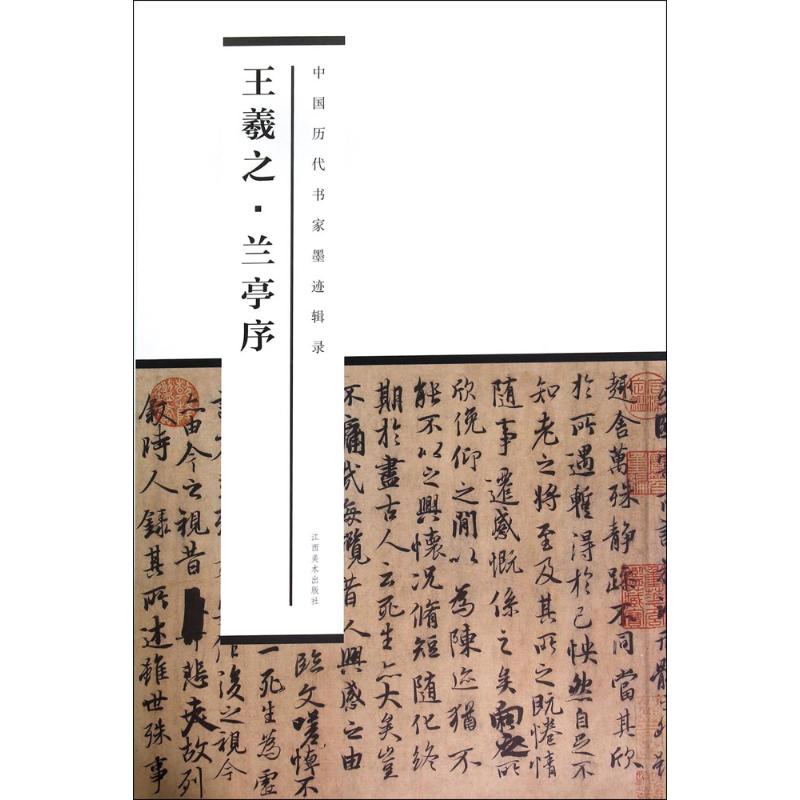 王羲之·兰亭序
中国历代书家墨迹辑录
江西美术出版社
趣舍萬殊静躁不同當其欣
於所遇暫得於己怏然自足不
知老之將至及其所之既惓情
隨事遷感慨係之矣向之所
欣俛仰之閒以為陳迹猶不
能不以之興懷況脩短随化終
期於盡古人云死生亦大矣豈
不痛哉每攬昔人興感之由
臨文嗟悼不
一死生為虛
作後之視今
亦由今之視昔悲夫故列
叙時人錄其所述雖世殊事